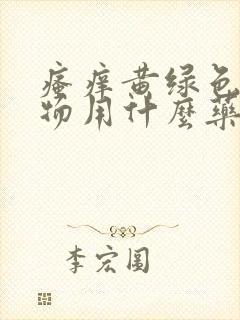 瘙痒黄绿色
物用什麼藥
李宏圆